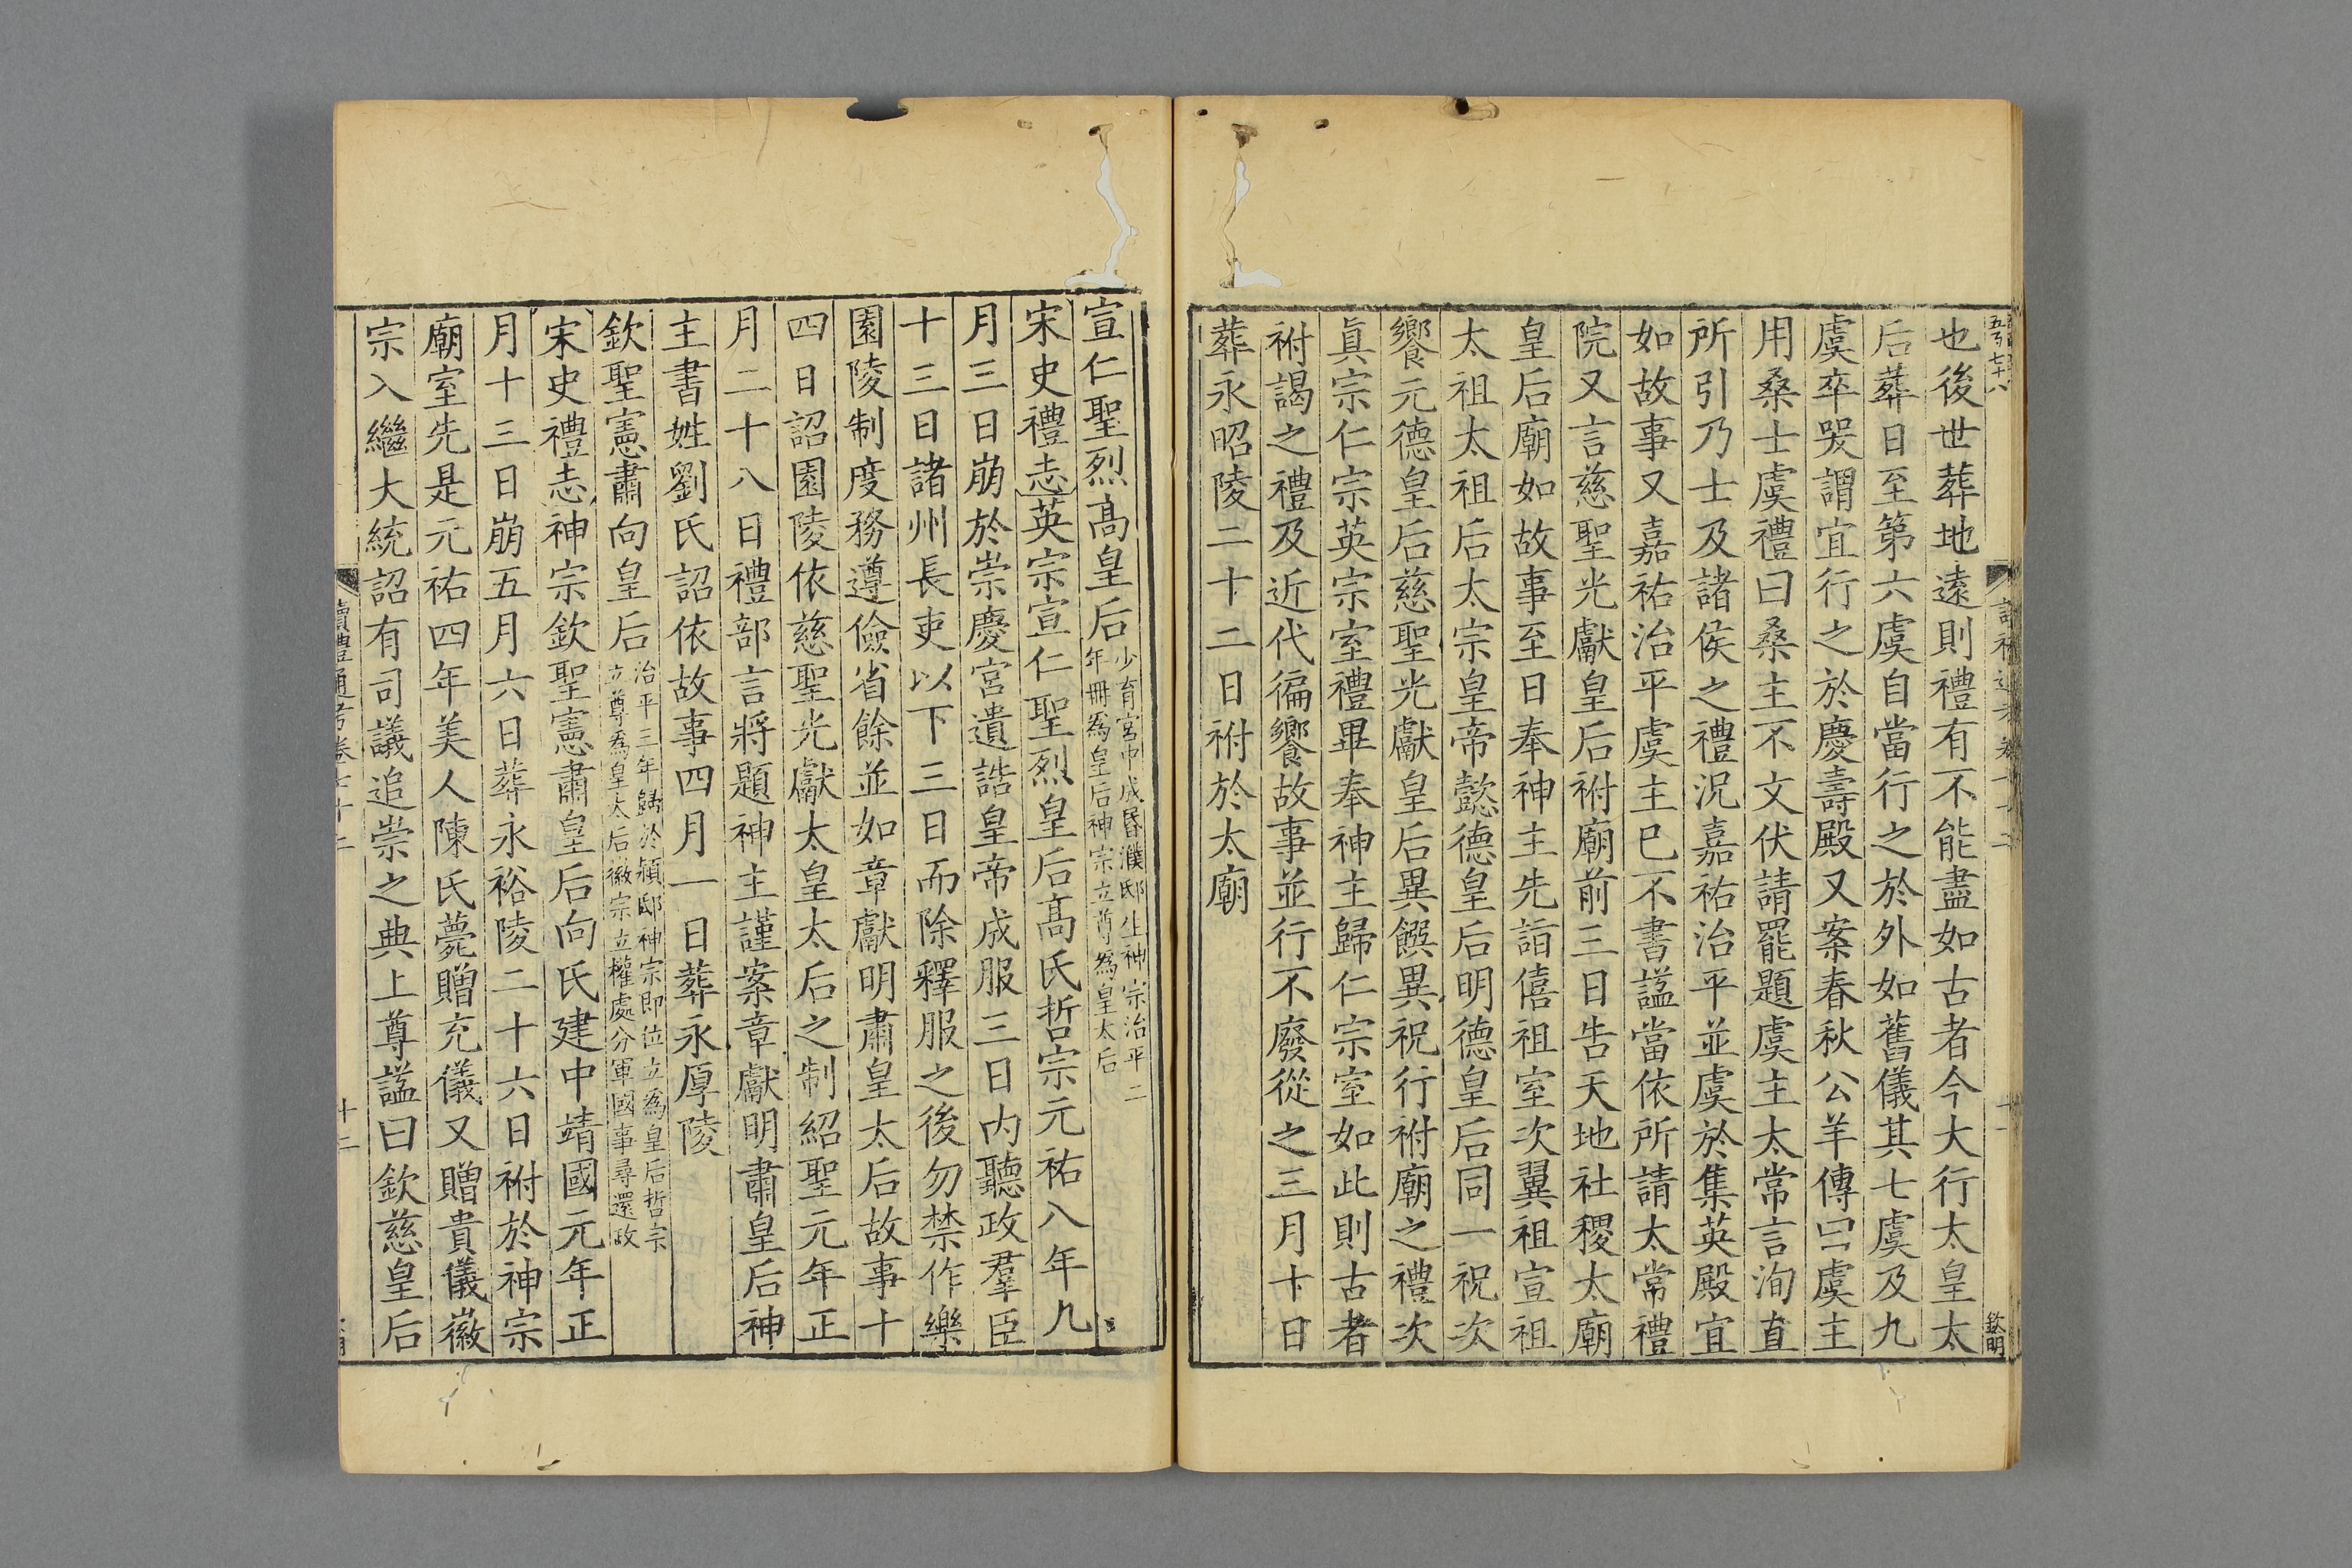 也後世葬地遠則禮有不能盡如古者今大行太皇太
后葬日至第六虞自當行之於外如舊儀其七虞及九
虞卒哭謂宜行之於慶壽殿又案春秋公羊傳曰虞主
用桑士虞禮曰桑主不文伏請罷題虞主太常言洵直
所引乃士及諸侯之禮況嘉祐治平並虞於集英殿宜
如故事又嘉祐治平虞主已不書謚當依所請太常禮
院又言慈聖光獻皇后祔廟前三日告天地社稷太廟
皇后廟如故事至日奉神主先詣僖祖室次翼祖宣祖
太祖太祖后太宗皇帝懿德皇后明德皇后同一祝次
饗元德皇后慈聖光獻皇后異饌異祝行祔廟之禮次
眞宗仁宗英宗室禮畢奉神主歸仁宗室如此則古者
祔謁之禮及近代徧饗故事並行不廢從之三月十日
葬永昭陵二十二日祔於太廟
宣仁聖烈高皇后
少育宮中成昏濮邸生神宗治平二
年冊為皇后神宗立尊為皇太后
宋史禮志英宗宣仁聖烈皇后高氏哲宗元祐八年九
月三日崩於崇慶宮遺誥皇帝成服三日內聽政羣臣
十三日諸州長吏以下三日而除釋服之後勿禁作樂
園陵制度務遵儉省餘並如章獻明肅皇太后故事十
四日詔園陵依慈聖光獻太皇太后之制紹聖元年正
月二十八日禮部言將題神主謹案章獻明肅皇后神
主書姓劉氏詔依故事四月一日葬永厚陵
欽聖憲肅向皇后
治平三年歸於潁邸神宗即位立為皇后哲宗
立尊為皇太后徽宗立權處分軍國事尋還政
宋史禮志神宗欽聖憲肅皇后向氏建中靖國元年正
月十三日崩五月六日葬永裕陵二十六日祔於神宗
廟室先是元祐四年美人陳氏薨贈充儀又贈貴儀徽
宗入繼大統詔有司議追崇之典上尊謚曰欽慈皇后
讀禮通考卷
十二